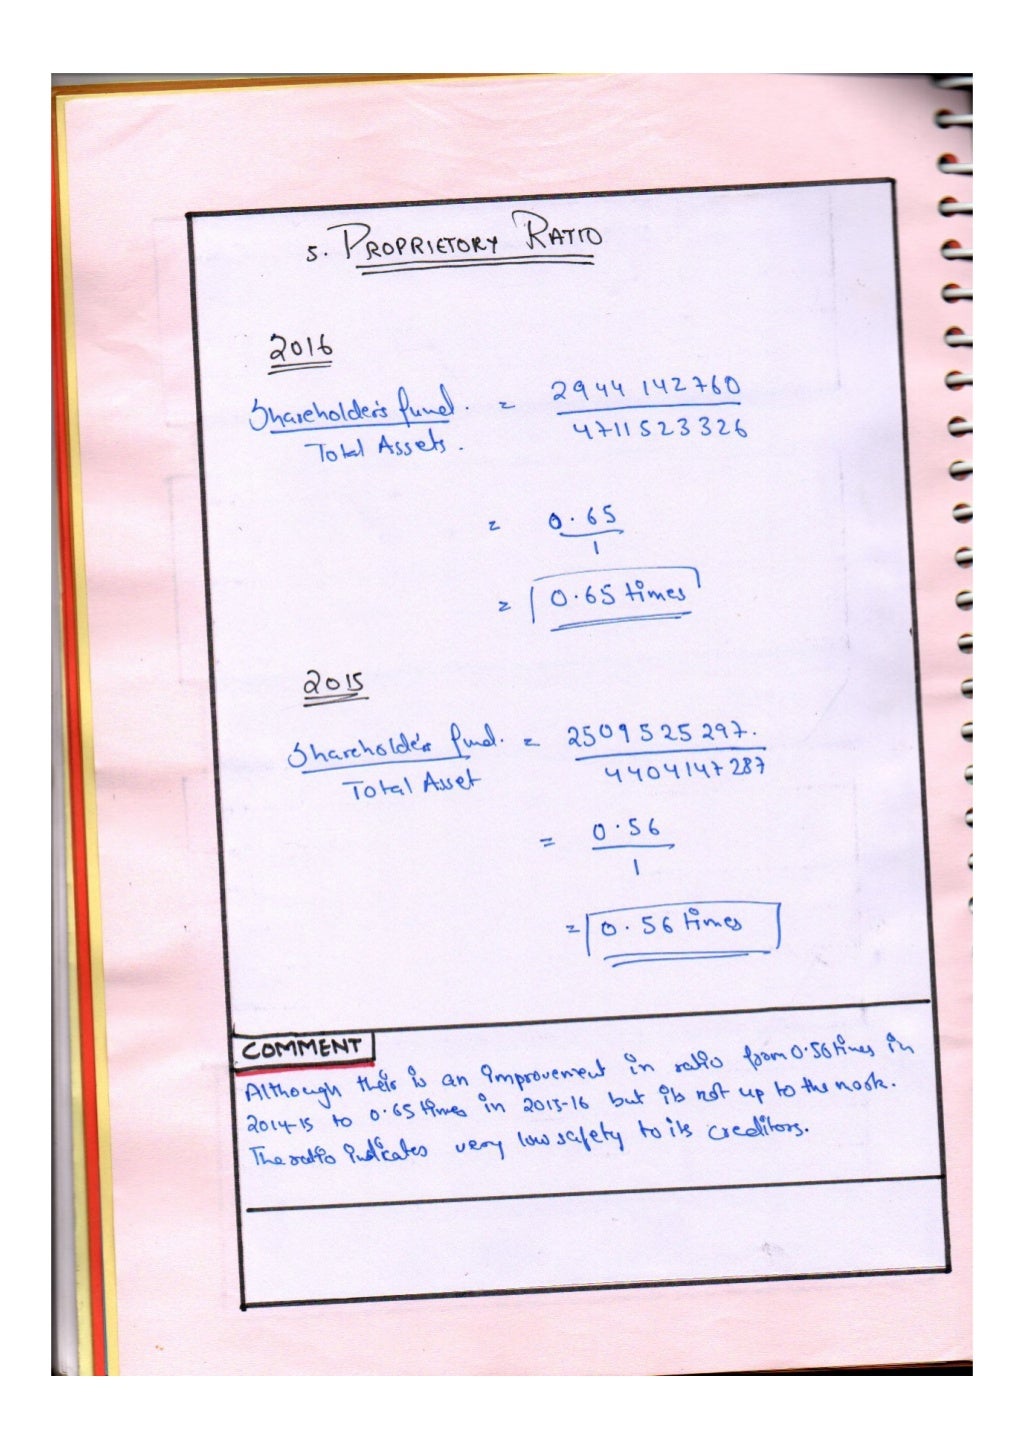 5. PROPRIETORY RATIO
2016
Shareholder's fund. = 2944142760
Total Assets. 4711523326
= 0.65
1
= 0.65 times
2015
Shareholder's fund. = 2509525297.
Total Asset 4404147287
= 0.56
1
= 0.56 times
COMMENT
Although their is an improvement in ratio from 0.56 times in
2014-15 to 0.65 times in 2015-16 but its not up to the mark.
The ratio indicates very low safety to its creditors.